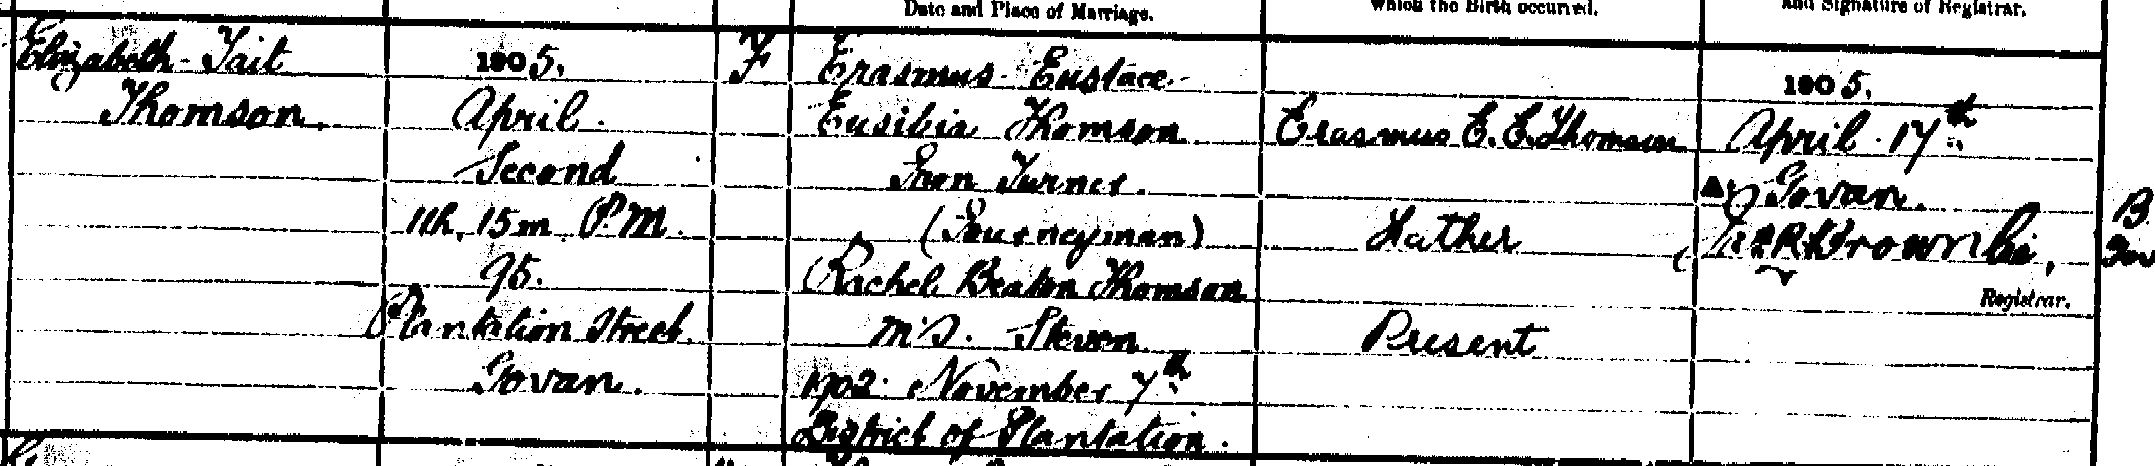 Date and Place of Marriage.
which the Birth occurred.
and Signature of Registrar.
Elizabeth Tait
Thomson.
1905.
April.
Second
11h. 15m. P.M.
95.
Plantation Street.
Govan.
F
Erasmus Eustace
Eusibia Thomson
Iron Turner.
(Journeyman)
Rachel Beaton Thomson
m.s. Steven
1902. November 7th
District of Plantation.
Erasmus E. E. Thomson
Father
Present
1905.
April 17th
Govan.
Registrar.
B